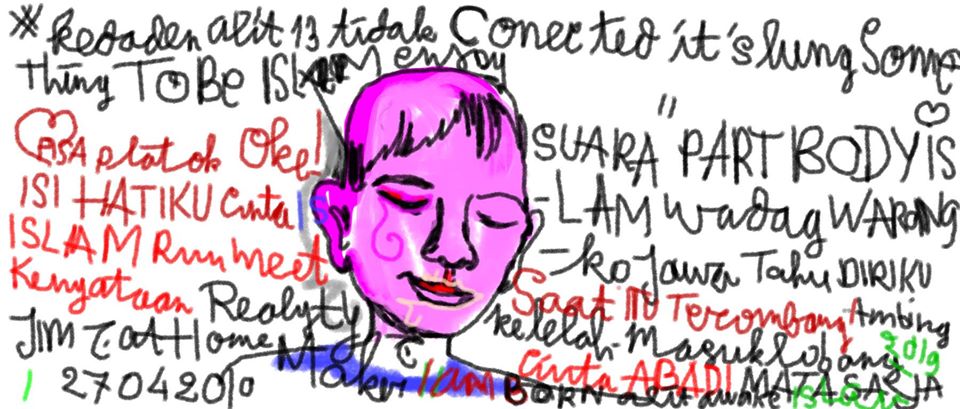 Kedaden alit 13 tidak Conected it's lung Some
thing TO BE ISLAM enjoy
RASA platok Oke!
SUARA " PART BODY IS
ISI HATIKU Cinta IS
-LAM wadag WARANG
ISLAM Run meet
-ko Jawa Tahu DIRIKU
Kenyataan Realyty
Saat INI Terombang Ambing
JIM Z at Home My
kelelah Masuk lobang 2019
1 27042010 Maker I am BORN alit awake
Cinta ABADI MATA SAJA ISLAM